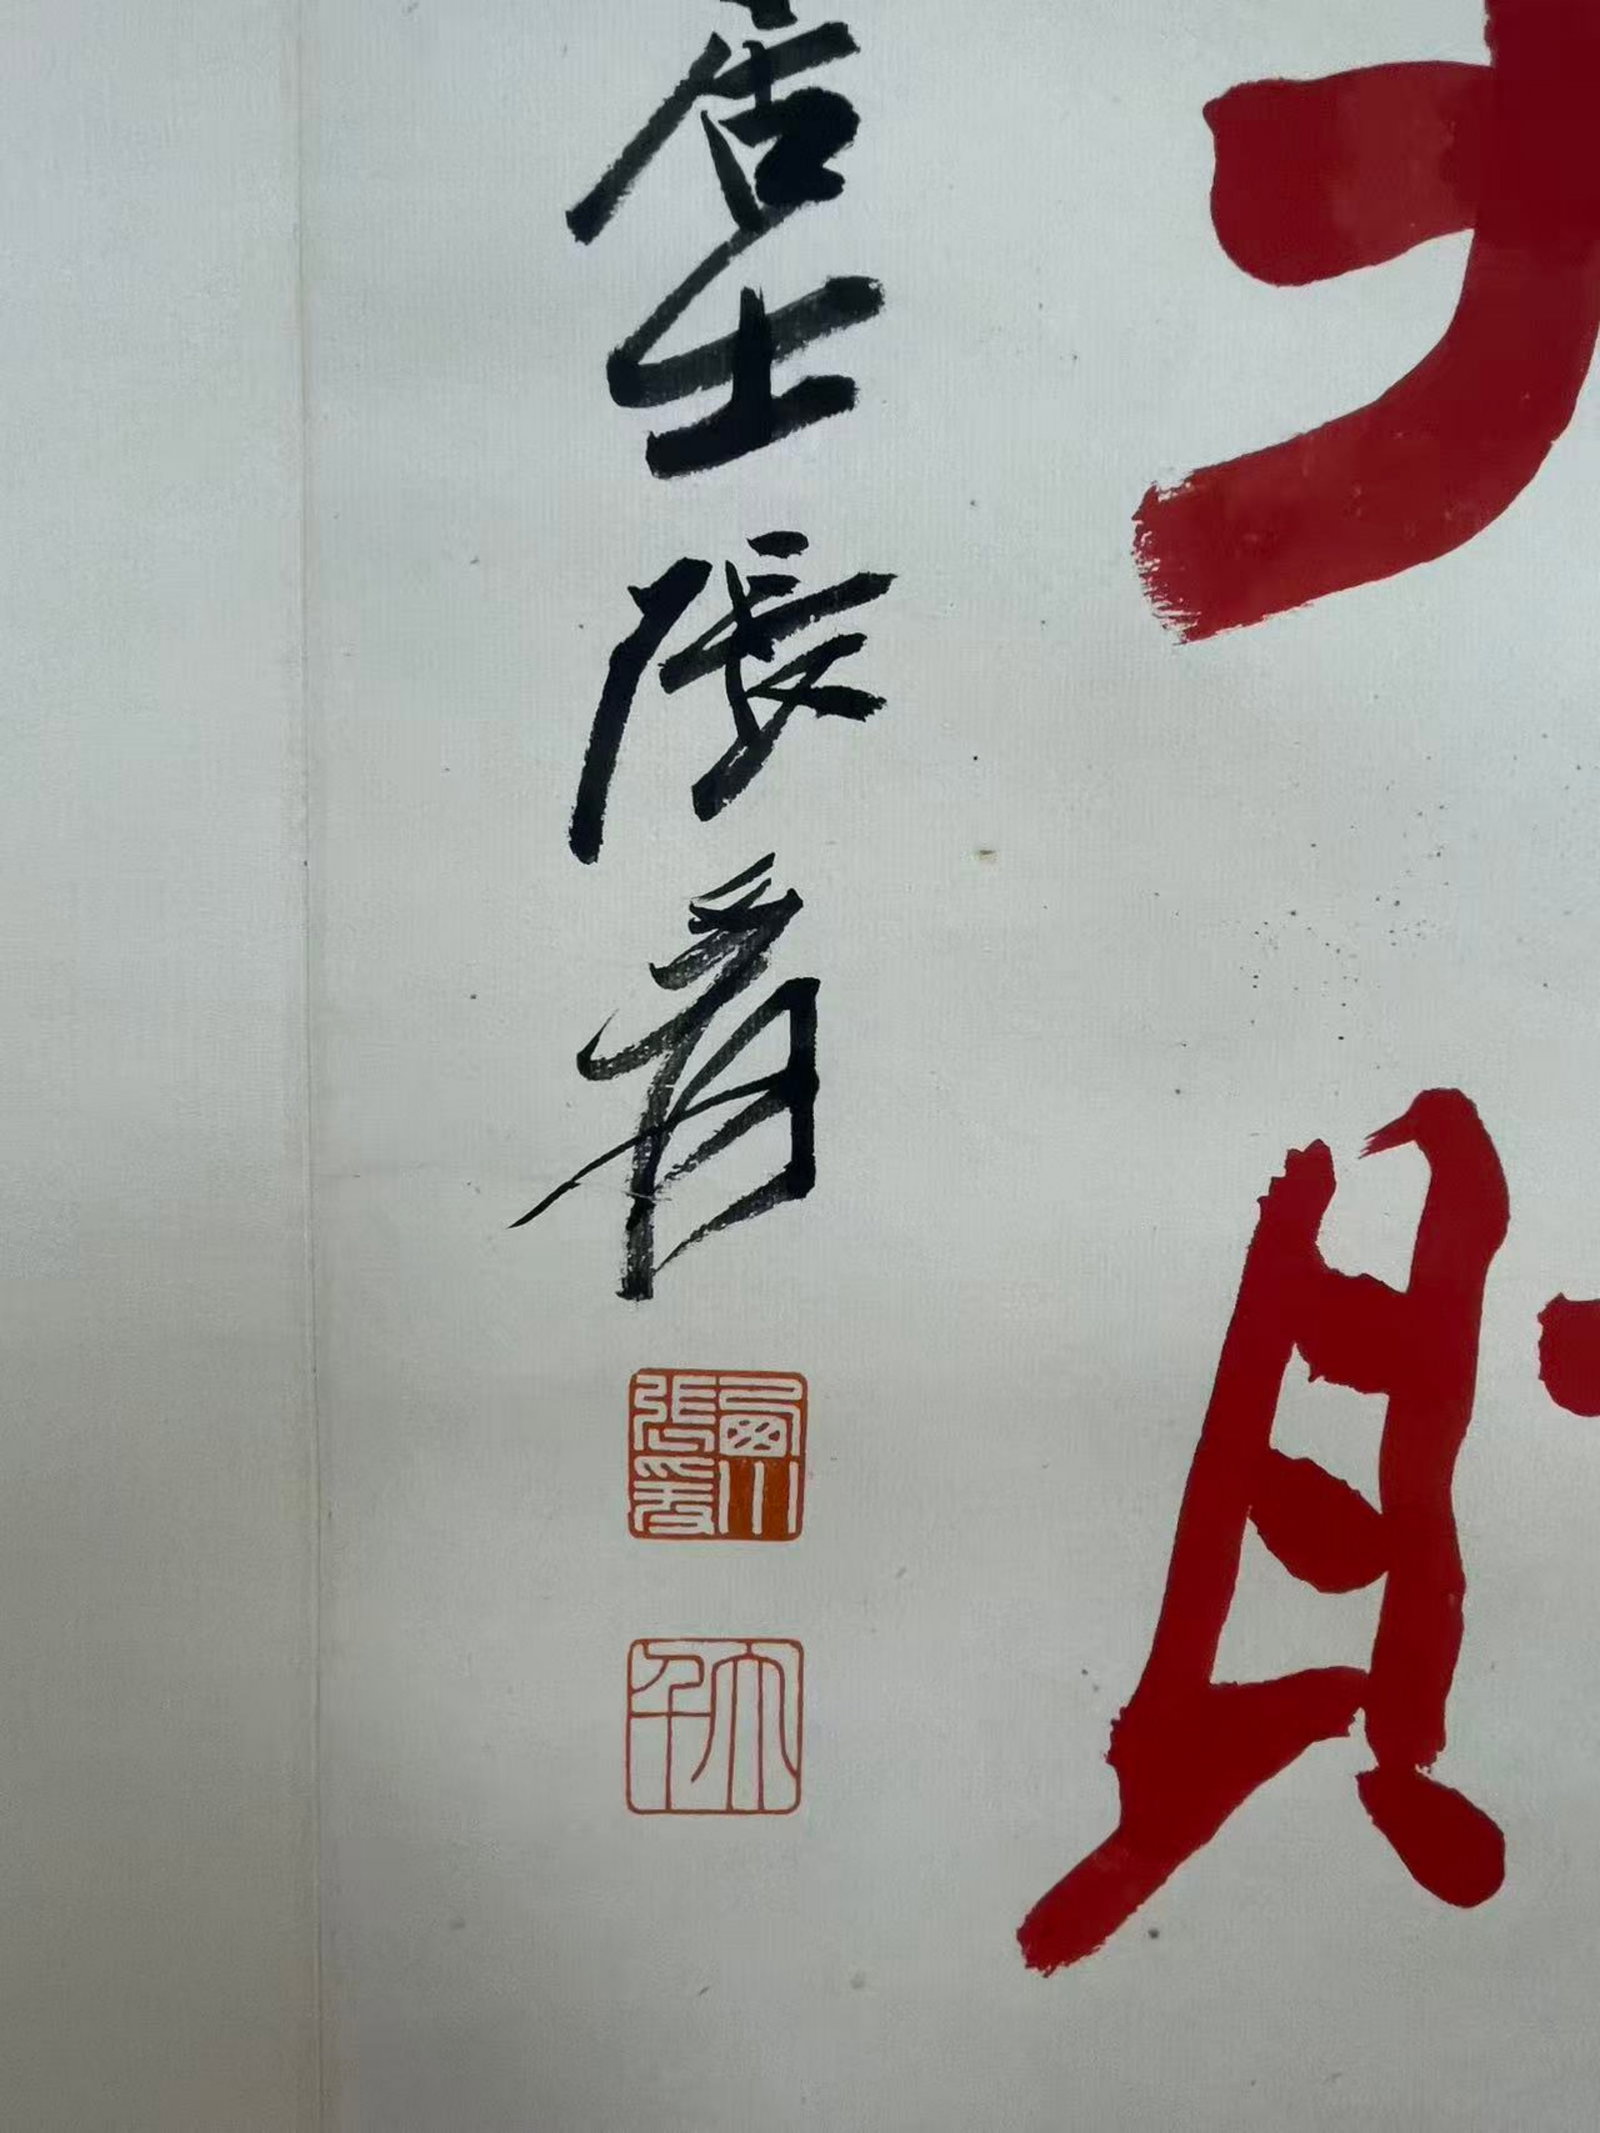 居士張爰
西川張爰
大千